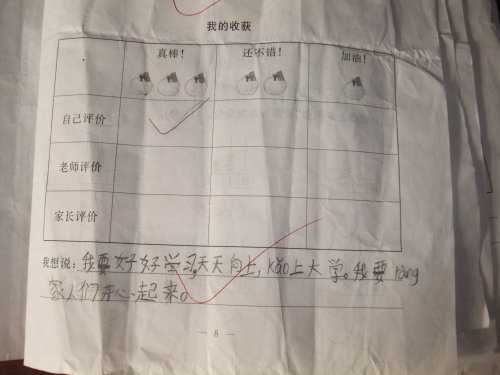 我的收获
真棒！ 还不错！ 加油！
自己评价
老师评价
家长评价
我想说：我要好好学习，天天向上，kǎo上大学。我要ràng
家人们开心一起来。
— 8 —